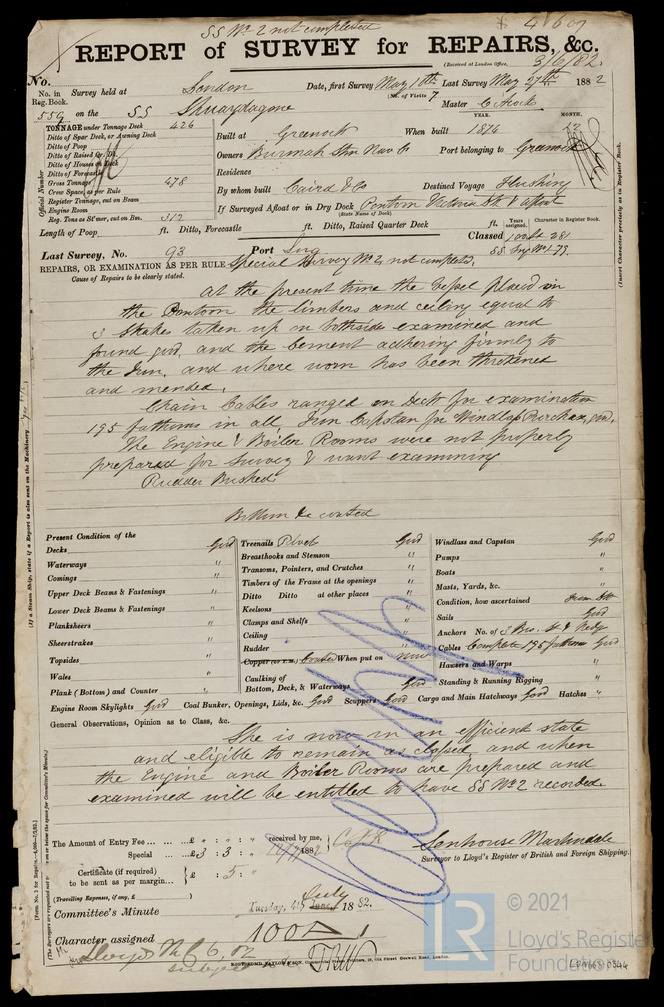 SS No. 2 not completed
4607
REPORT of SURVEY for REPAIRS, &c.
(Received at London Office, 3/6/82.
No.
No. in Reg. Book. Survey held at London Date, first Survey May 10th Last Survey May 27th 1882
(No. of Visits 7
559 on the SS Master C
TONNAGE under Tonnage Deck 426
Ditto of Spar Deck, or Awning Deck
Ditto of Poop
Ditto of Raised Qr. Dk.
Ditto of Houses on Deck
Ditto of Forecastle
Gross Tonnage 478
Cross Space, as per Rule
Register Tonnage, cut on Beam
Engine Room
Reg. Tons as St'mer, cut on Bm. 312
Official Number
YEAR. MONTH.
Built at Greenock When built 1874 12
Owners Burmah Stm Nav Co Port belonging to Greenock
Residence
By whom built Caird & Co Destined Voyage Flushing
If Surveyed Afloat or in Dry Dock Pontoon Victoria Dk & afloat
(State Name of Dock)
Length of Poop ft. Ditto, Forecastle ft. Ditto, Raised Quarter Deck ft.
Years assigned. Character in Register Book.
Last Survey, No. 93 Port
Classed 100
(Insert Character precisely as in Register Book.
REPAIRS, OR EXAMINATION AS PER RULE Special Survey No. 2, not completed.
Cause of Repairs to be clearly stated.
At the present time the vessel placed in
the Pontoon the limbers and ceiling equal to
3 Strakes taken up on bothsides examined and
found good, and the cement adhering firmly to
the Iron, and where worn has been thickened
and mended.
Chain Cables ranged on Deck for examination
195 fathoms in all, Iron Capstan for Windlass Purchase, good.
The Engine & Boiler Rooms were not properly
prepared for Survey & want examining
Rudder Bushed
Bottom de coated
(If a Steam Ship, state if a Report is also sent on the Machinery
Present Condition of the
Decks Good
Waterways "
Comings "
Upper Deck Beams & Fastenings "
Lower Deck Beams & Fastenings "
Planksheers "
Sheerstrakes "
Topsides "
Wales "
Plank (Bottom) and Counter "
Treenails Rivets Good
Breasthooks and Stemson "
Transoms, Pointers, and Crutches "
Timbers of the Frame at the openings "
Ditto Ditto at other places "
Keelsons "
Clamps and Shelfs "
Ceiling "
Rudder "
Copper (or Y.M.) Coated When put on now
Caulking of Bottom, Deck, & Waterways Good
Windlass and Capstan Good
Pumps "
Boats "
Masts, Yards, &c. "
Condition, how ascertained From Dk
Sails Good
Anchors No. of 3 Bro. St. & Kedg
Cables Complete 195 fathoms Good
Hawsers and Warps "
Standing & Running Rigging "
Engine Room Skylights Good Coal Bunker, Openings, Lids, &c. Good Scuppers Good Cargo and Main Hatchways Good Hatches "
General Observations, Opinion as to Class, &c.
She is now in an efficient state
and eligible to remain as classed and when
the Engine and Boiler Rooms are prepared and
examined will be entitled to have SS No 2 recorded.
The Amount of Entry Fee ... £ : : received by me,
Special ... £ 3 : 3 : 1882
Certificate (if required) to be sent as per margin... £ : 5 :
(Travelling Expenses, if any, £ )
Senhouse Martindale
Surveyor to Lloyd's Register of British and Foreign Shipping.
Committee's Minute Tuesday, 4th June July 1882.
Character assigned 100A1
Lloyds 6, 6, 82
subject
© 2021
LR
Lloyd's Register
Foundation